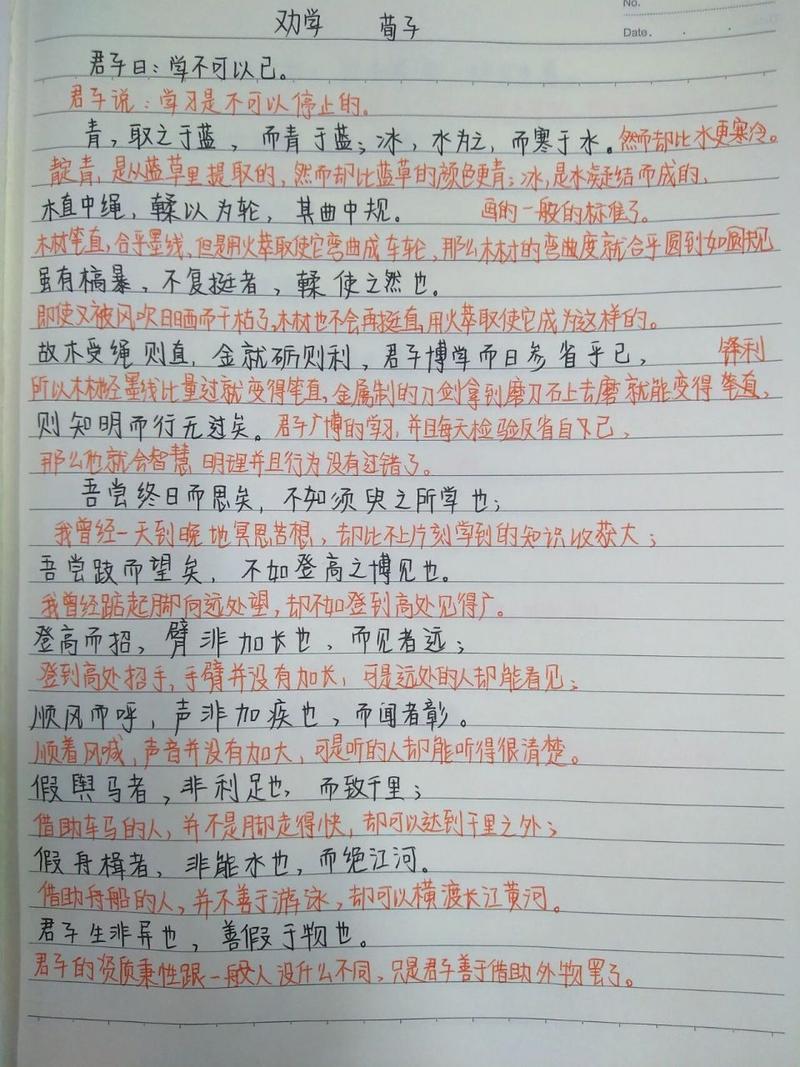 No.
Date.
劝学 荀子
君子曰：学不可以已。
君子说：学习是不可以停止的。
青，取之于蓝，而青于蓝；冰，水为之，而寒于水。然而却比水更寒冷。
靛青，是从蓝草里提取的，然而却比蓝草的颜色更青；冰，是水凝结而成的，
木直中绳，輮以为轮，其曲中规。 画的一般的标准了。
木材笔直，合乎墨线，但是用火萃取使它弯曲成车轮，那么木材的弯曲度就合乎圆到如圆规
虽有槁暴，不复挺者，輮使之然也。
即使又被风吹日晒而干枯了，木材也不会再挺直，用火萃取使它成为这样的。
故木受绳则直，金就砺则利，君子博学而日参省乎己， 锋利
所以木材经墨线比量过就变得笔直，金属制的刀剑拿到磨刀石上去磨就能变得笔直，
则知明而行无过矣。君子广博的学习，并且每天检验反省自己，
那么他就会智慧明理并且行为没有过错了。
吾尝终日而思矣，不如须臾之所学也；
我曾经一天到晚地冥思苦想，却比不上片刻学到的知识收获大；
吾尝跂而望矣，不如登高之博见也。
我曾经踮起脚向远处望，却不如登到高处见得广。
登高而招，臂非加长也，而见者远；
登到高处招手，手臂并没有加长，可是远处的人却能看见；
顺风而呼，声非加疾也，而闻者彰。
顺着风喊，声音并没有加大，可是听的人却能听得很清楚。
假舆马者，非利足也，而致千里；
借助车马的人，并不是脚走得快，却可以达到千里之外；
假舟楫者，非能水也，而绝江河。
借助舟船的人，并不善于游泳，却可以横渡长江黄河。
君子生非异也，善假于物也。
君子的资质秉性跟一般人没什么不同，只是君子善于借助外物罢了。